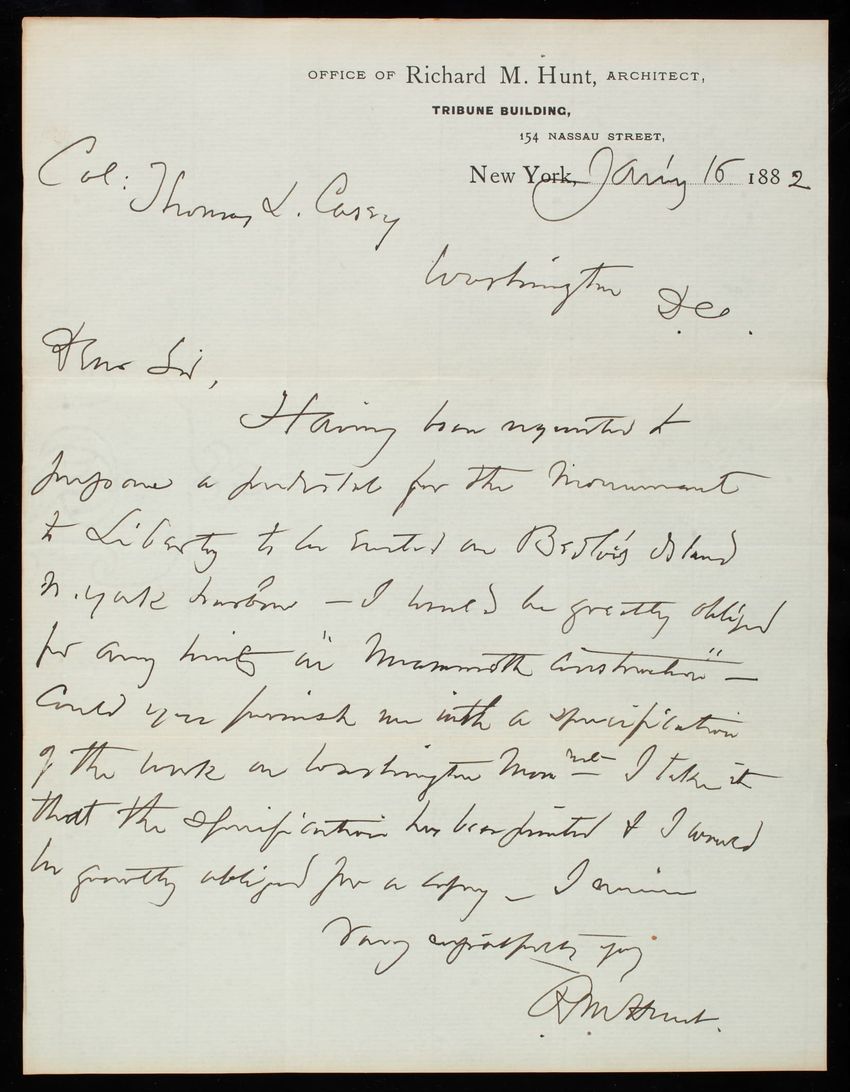 OFFICE OF Richard M. Hunt, ARCHITECT,
TRIBUNE BUILDING,
154 NASSAU STREET,
New York, Jan'y 16 1882
Col: Thomas L. Casey
Washington D.C.
Dear Sir,
Having been requested to
prepare a pedestal for the Monument
to Liberty to be erected on Bedlo's Island
N. York harbour – I would be greatly obliged
for any hints in "Mammoth Construction" –
Could you furnish me with a specification
of the work on Washington Monmt – I take it
that the specification has been printed & I would
be greatly obliged for a copy – I remain
Very respectfully yrs
R M Hunt.